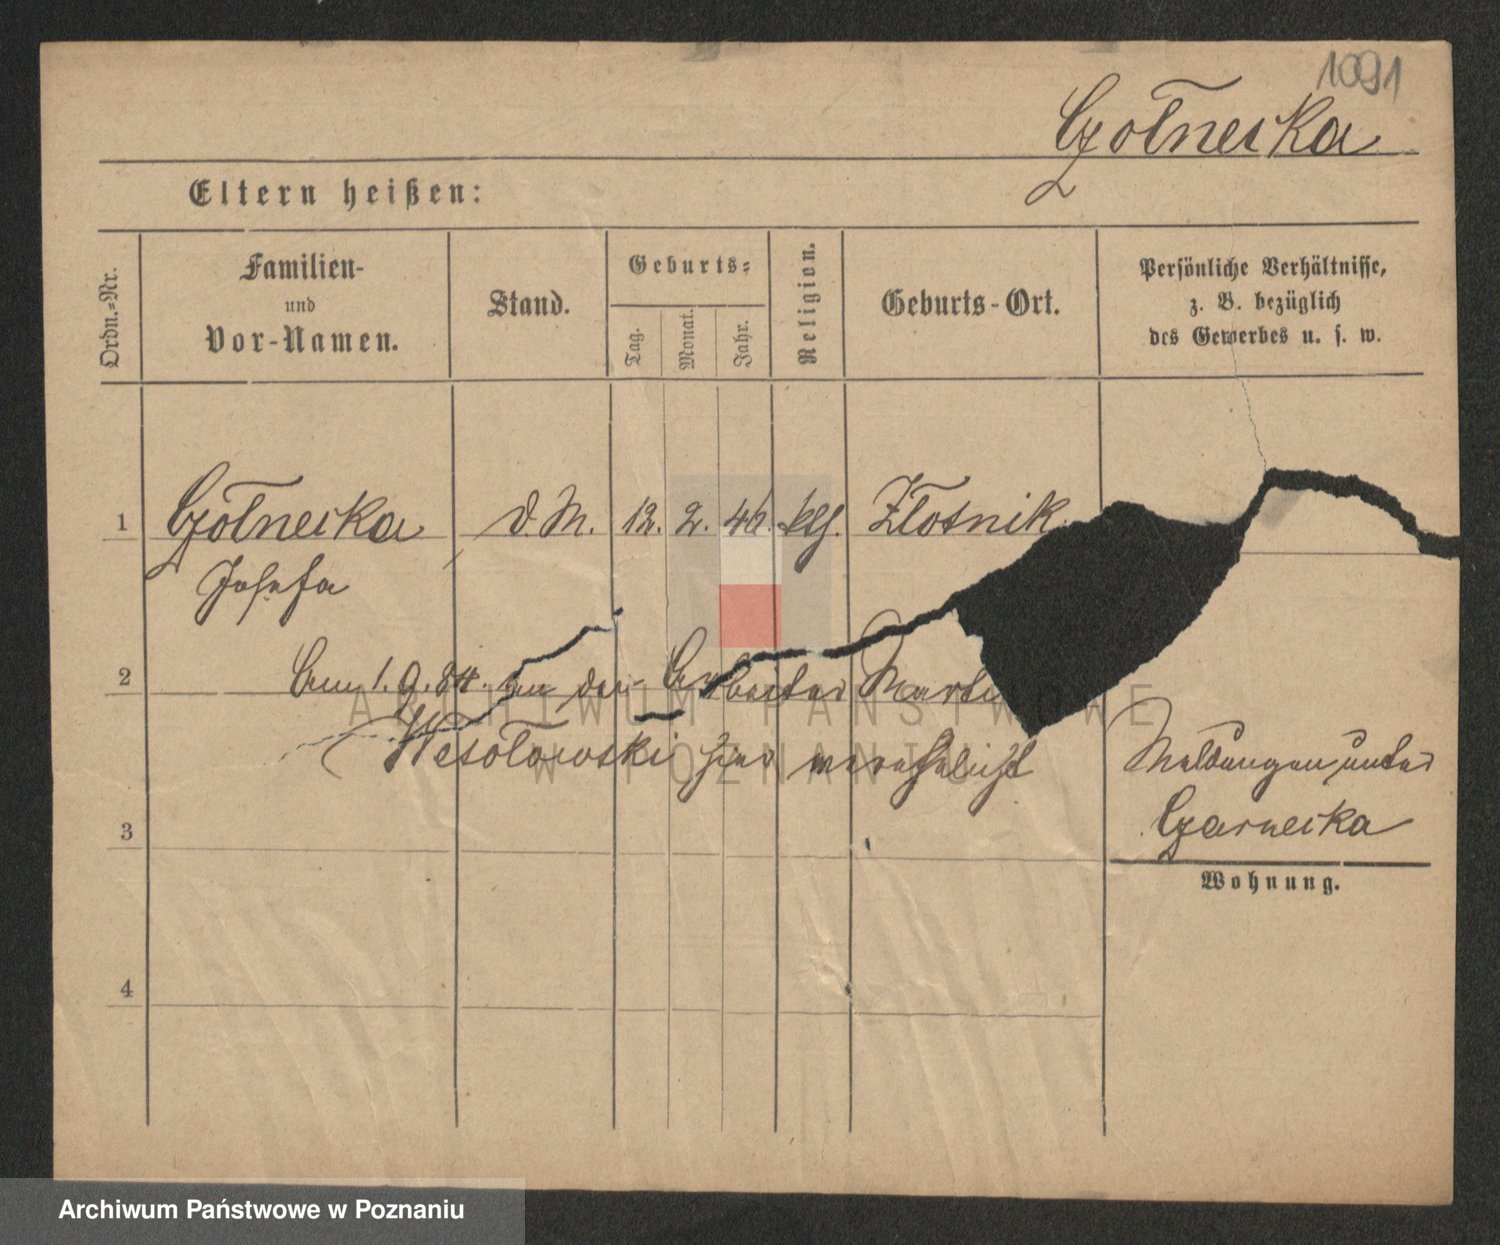 1091
Czołnecka
Eltern heißen:
Ordn.-Nr.
Familien-
und
Vor-Namen.
Stand.
Geburts-
Tag.
Monat.
Jahr.
Religion.
Geburts-Ort.
Persönliche Verhältnisse,
z. B. bezüglich
des Gewerbes u. s. w.
1 Czołnecka d. M. 12. 2. 46. klg. Złotnik
Josefa
2 am 1. 9. 84. an den Arbeiter
Wesołowski hier verehelicht
Meldungen unter
Czarnecka
3
Wohnung.
4
ARCHIWUM PAŃSTWOWE
W POZNANIU
Archiwum Państwowe w Poznaniu